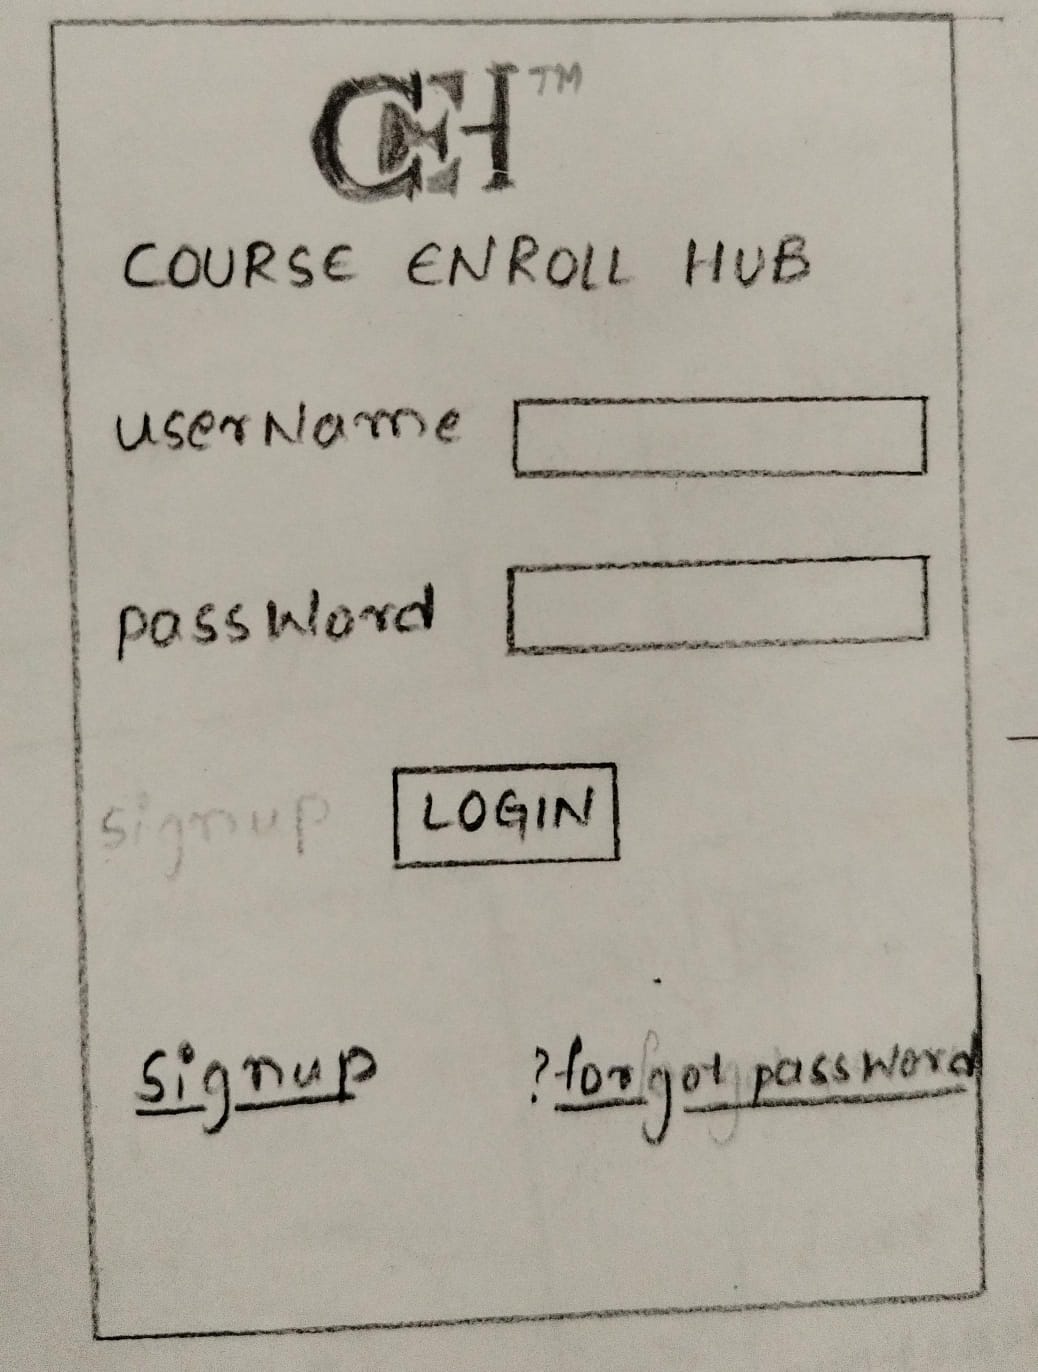 CEH TM
COURSE ENROLL HUB
userName
passWord
signup LOGIN
signup ?forgot password